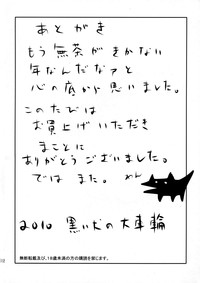 あとがき
もう無茶がきかない
年なんだなァと
心の底から思いました。
このたびは
お買上げいただき
まことに
ありがとうございました。
ではまた。 わん
2010 黒い犬の大車輪
無断転載及び、18歳未満の方の購読を禁じます。